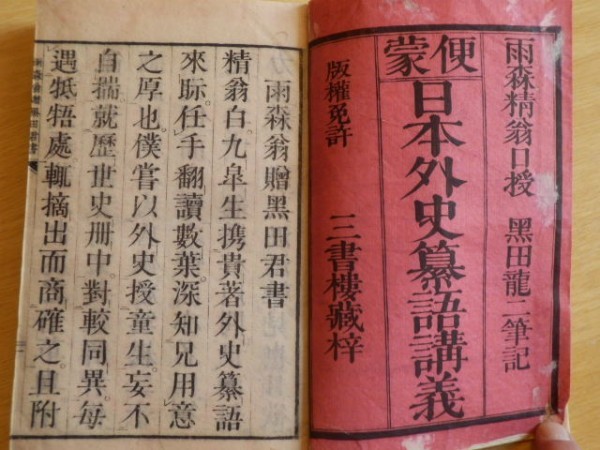 雨森精翁口授　黑田龍二筆記
便蒙
日本外史纂語講義
版權免許
三書樓藏梓
雨森翁贈黑田君書
精翁白九皐生携貴著外史纂語
來眎任手翻讀數葉深知兄用意
之厚也僕嘗以外史授童生妄不
自揣就歷世史册中對較同異每
遇牴牾處輒摘出而商確之且附